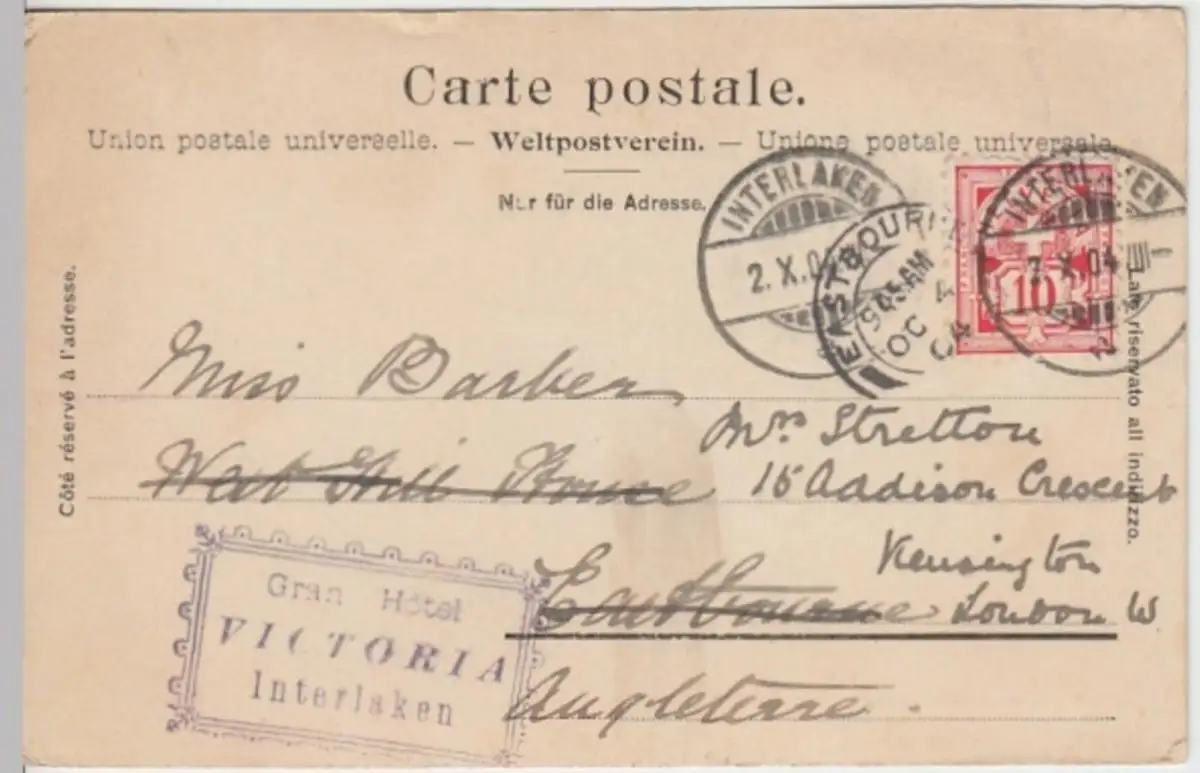 Carte postale.
Union postale universelle. — Weltpostverein. — Unione postale universale.
Nur für die Adresse.
INTERLAKEN
2. X. 04
EASTBOURNE
9 05 AM
OC 4
04
INTERLAKEN
2. X. 04 III-
10
Côté réservé à l'adresse.
Lato riservato all indirizzo.
Miss Barber
Mrs Stretton
Wat Hill House
15 Addison Crescent
Kensington
Eastbourne London W
Angleterre.
Gran Hôtel
VICTORIA
Interlaken